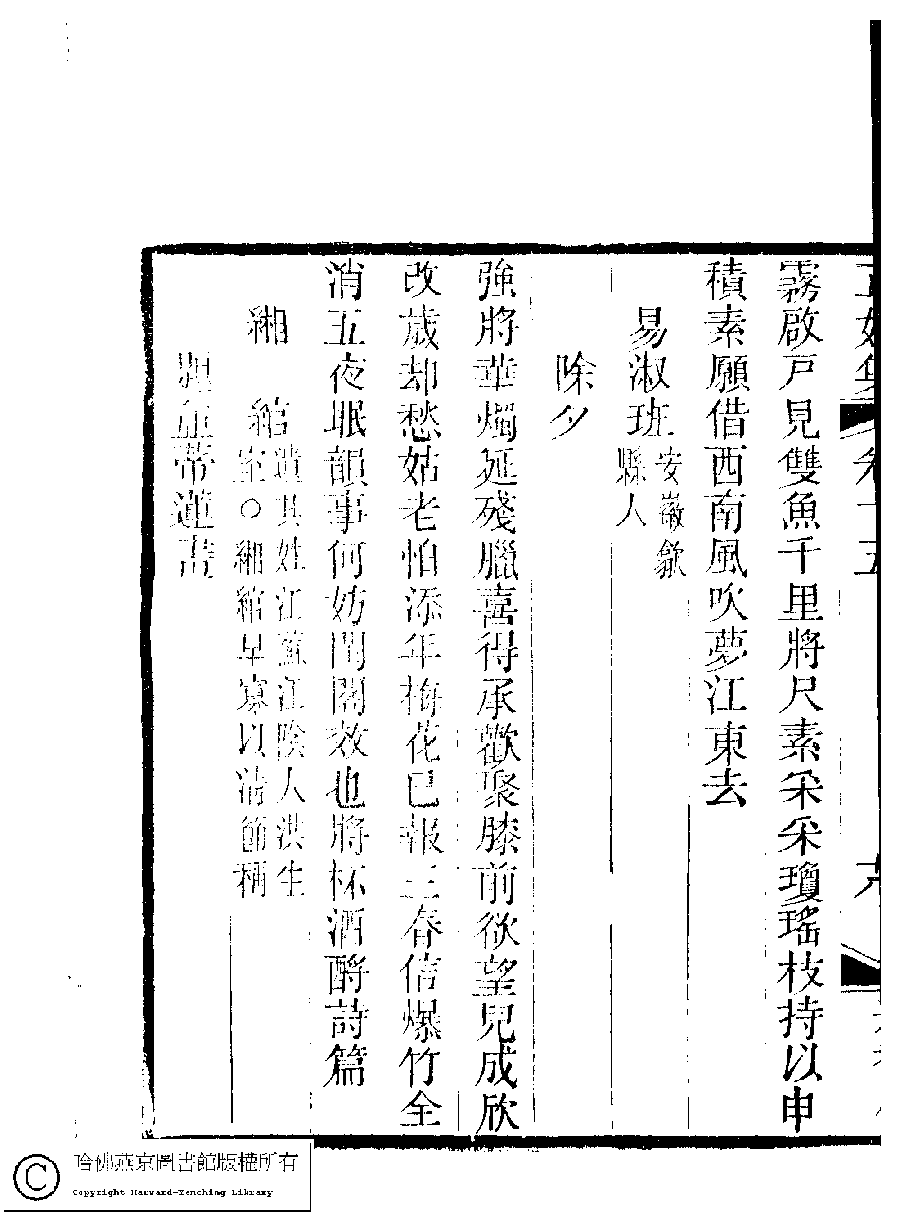 霧啟戸見雙魚千里將尺素采采瓊瑤枝持以申
積素願借西南風吹夢江東去
易淑班安徽歙縣人
除夕
強將華燭延殘臘喜得承歡聚膝前欲望兒成欣
改歲却愁姑老怕添年梅花已報三春信爆竹全
消五夜眠韻事何妨閨閣效也將杯酒酹詩篇
緗綰遺其姓江蘇江陰人洪生室○緗綰早寡以清節稱
題並蒂蓮畫
哈佛燕京圖書館版權所有
Copyright Harvard-Yenching Library